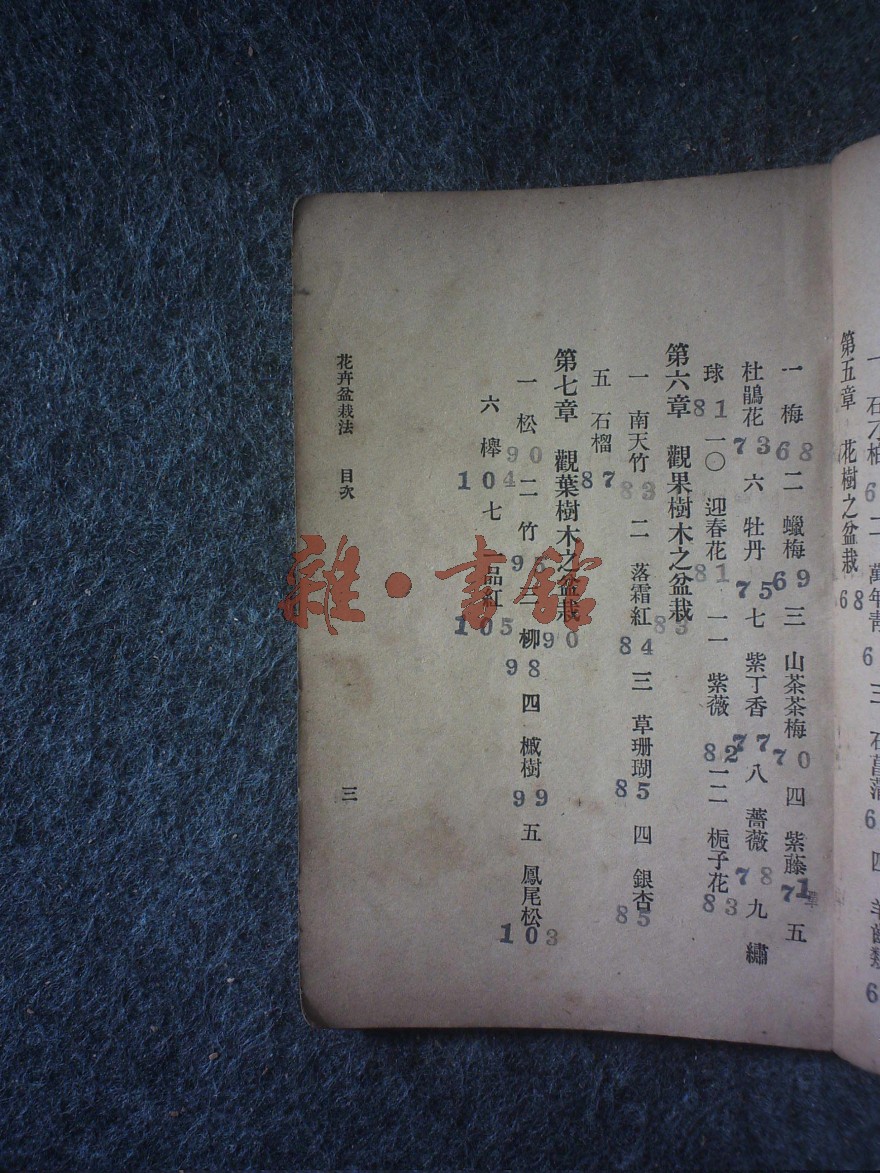 第五章 花樹之盆栽 68
一 梅 68 二 蠟梅 69 三 山茶茶梅 70 四 紫藤 71 五
杜鵑花 73 六 牡丹 75 七 紫丁香 77 八 薔薇 78 九 繡
球 81 一〇 迎春花 81 一一 紫薇 82 一二 梔子花 83
第六章 觀果樹木之盆栽 83
一 南天竹 83 二 落霜紅 84 三 草珊瑚 85 四 銀杏 85
五 石榴 87
第七章 觀葉樹木之盆栽 90
一 松 90 二 竹 95 三 柳 98 四 槭樹 99 五 鳳尾松 103
六 櫸 104 七 一品紅 105
花卉盆栽法 目次 三
雜·書館